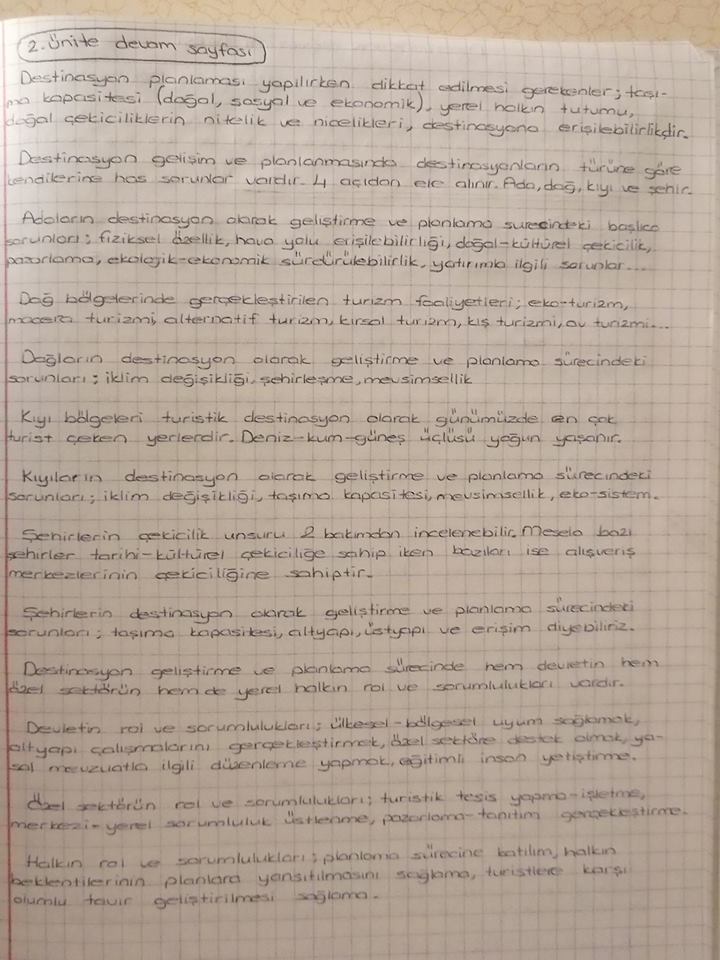 2. Ünite devam sayfası
Destinasyon planlaması yapılırken dikkat edilmesi gerekenler; taşı-
ma kapasitesi (doğal, sosyal ve ekonomik), yerel halkın tutumu,
doğal çekiciliklerin nitelik ve nicelikleri, destinasyona erişilebilirlikdir.
Destinasyon gelişim ve planlanmasında destinasyonların türüne göre
kendilerine has sorunlar vardır. 4 açıdan ele alınır. Ada, dağ, kıyı ve şehir.
Adaların destinasyon olarak geliştirme ve planlama sürecindeki başlıca
sorunları; fiziksel özellik, hava yolu erişilebilirliği, doğal-kültürel çekicilik,
pazarlama, ekolojik-ekonomik sürdürülebilirlik, yatırımla ilgili sorunlar...
Dağ bölgelerinde gerçekleştirilen turizm faaliyetleri; eko-turizm,
macera turizmi, alternatif turizm, kırsal turizm, kış turizmi, av turizmi...
Dağların destinasyon olarak geliştirme ve planlama sürecindeki
sorunları; iklim değişikliği, şehirleşme, mevsimsellik
Kıyı bölgeleri turistik destinasyon olarak günümüzde en çok
turist çeken yerlerdir. Deniz-kum-güneş üçlüsü yoğun yaşanır.
Kıyıların destinasyon olarak geliştirme ve planlama sürecindeki
sorunları; iklim değişikliği, taşıma kapasitesi, mevsimsellik, eko-sistem.
Şehirlerin çekicilik unsuru 2 bakımdan incelenebilir. Mesela bazı
şehirler tarihi-kültürel çekiciliğe sahip iken bazıları ise alışveriş
merkezlerinin çekiciliğine sahiptir.
Şehirlerin destinasyon olarak geliştirme ve planlama sürecindeki
sorunları; taşıma kapasitesi, altyapı, üstyapı ve erişim diyebiliriz.
Destinasyon geliştirme ve planlama sürecinde hem devletin hem
özel sektörün hem de yerel halkın rol ve sorumlulukları vardır.
Devletin rol ve sorumlulukları; ülkesel-bölgesel uyum sağlamak,
altyapı çalışmalarını gerçekleştirmek, özel sektöre destek olmak, ya-
sal mevzuatla ilgili düzenleme yapmak, eğitimli insan yetiştirme.
Özel sektörün rol ve sorumlulukları; turistik tesis yapma-işletme,
merkezi-yerel sorumluluk üstlenme, pazarlama-tanıtım gerçekleştirme.
Halkın rol ve sorumlulukları; planlama sürecine katılım, halkın
beklentilerinin planlara yansıtılmasını sağlama, turistlere karşı
olumlu tavır geliştirilmesi sağlama.